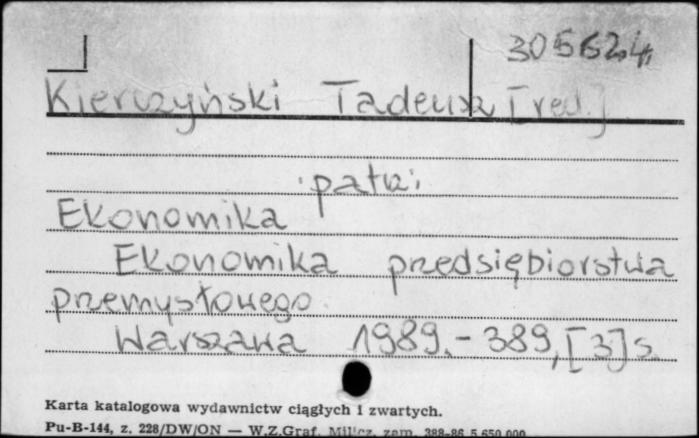 305524
Kierczyński Tadeusz [red.]
patrz:
Ekonomika
Ekonomika przedsiębiorstwa
przemysłowego
Warszawa 1989. - 389, [3] s.
Karta katalogowa wydawnictw ciągłych i zwartych.
Pu-B-144, z. 228/DW/ON — W.Z.Graf. Milicz, zam. 388-86 5.650.000